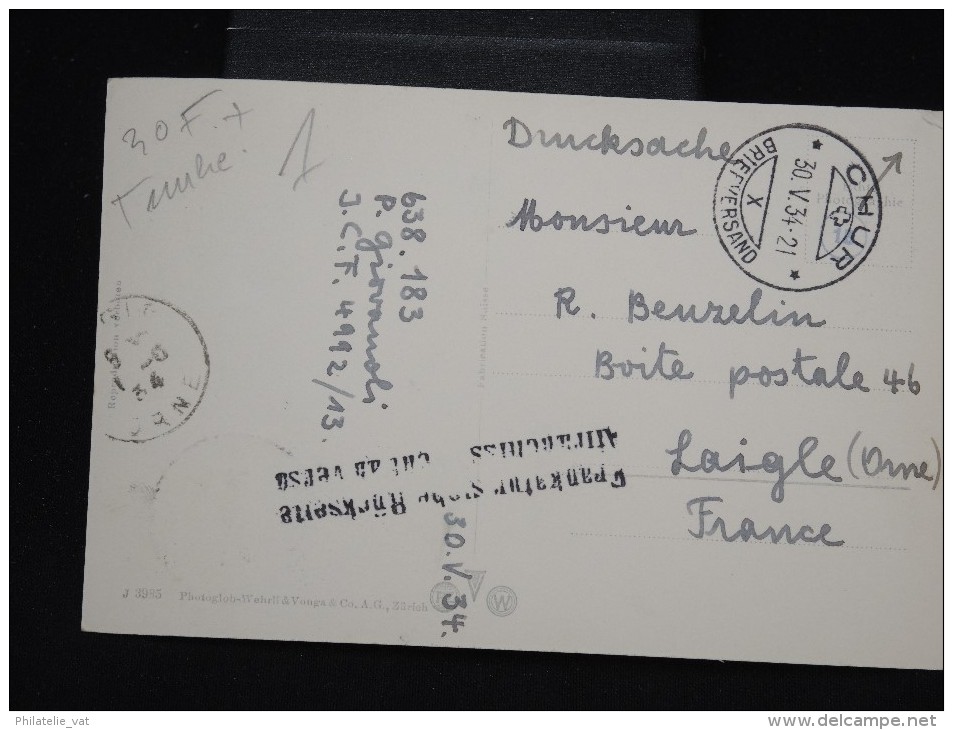 30 F. +
1
Drucksache
Monsieur
R. Beuzelin
Boite postale 46
Laigle (Orne)
France
CHUR
30.V.34-21
X
BRIEFVERSAND
638.183
P. Giovanoli
J.C.F. 4992/13.
30.V.34.
Frankatur siehe Rückseite
Affranchissement au verso
ORNE
Fabrication Suisse
J 3985 Photoglob-Wehrli & Vouga & Co. A.G., Zürich
W
Philatelie_vat
www.delcampe.net